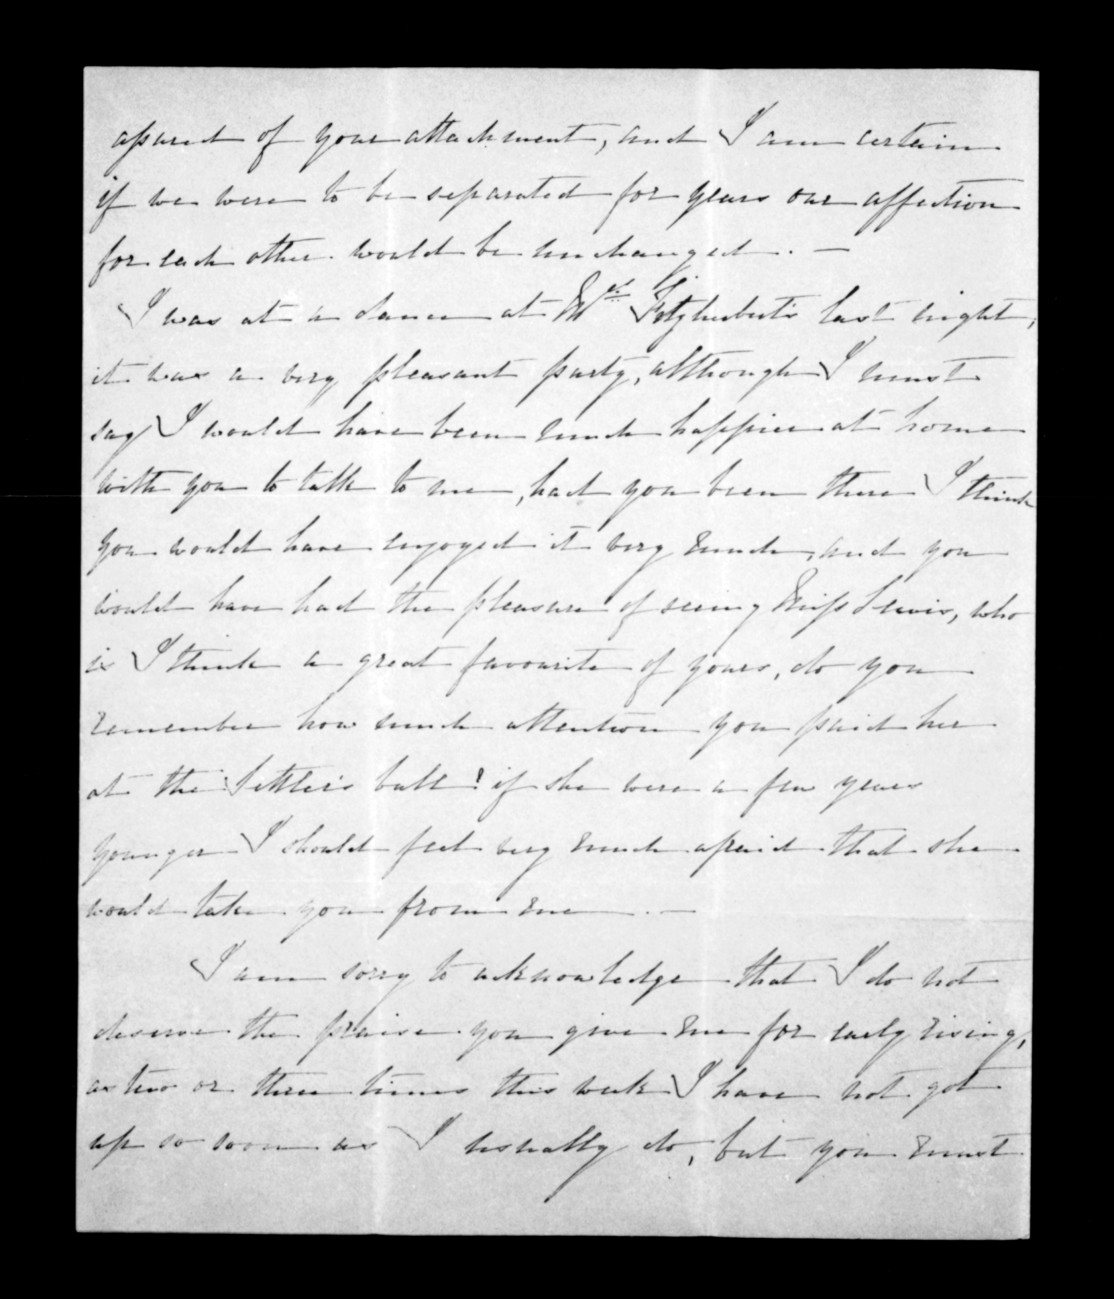 assured of your attachment, and I am certain
if we were to be separated for years our affection
for each other would be unchanged. —
I was at a dance at Mrs Fitzherbert's last night,
it was a very pleasant party, although I must
say I would have been much happier at home
with you to talk to me, had you been there I think
you would have enjoyed it very much, and you
would have had the pleasure of seeing Miss Lewis, who
is I think a great favourite of yours, do you
remember how much attention you paid her
at the Settlers ball! if she were a few years
younger I should feel very much afraid that she
would take you from me. —
I am sorry to acknowledge that I do not
deserve the praise you give me for early rising,
as two or three times this week I have not got
up so soon as I usually do, but you must